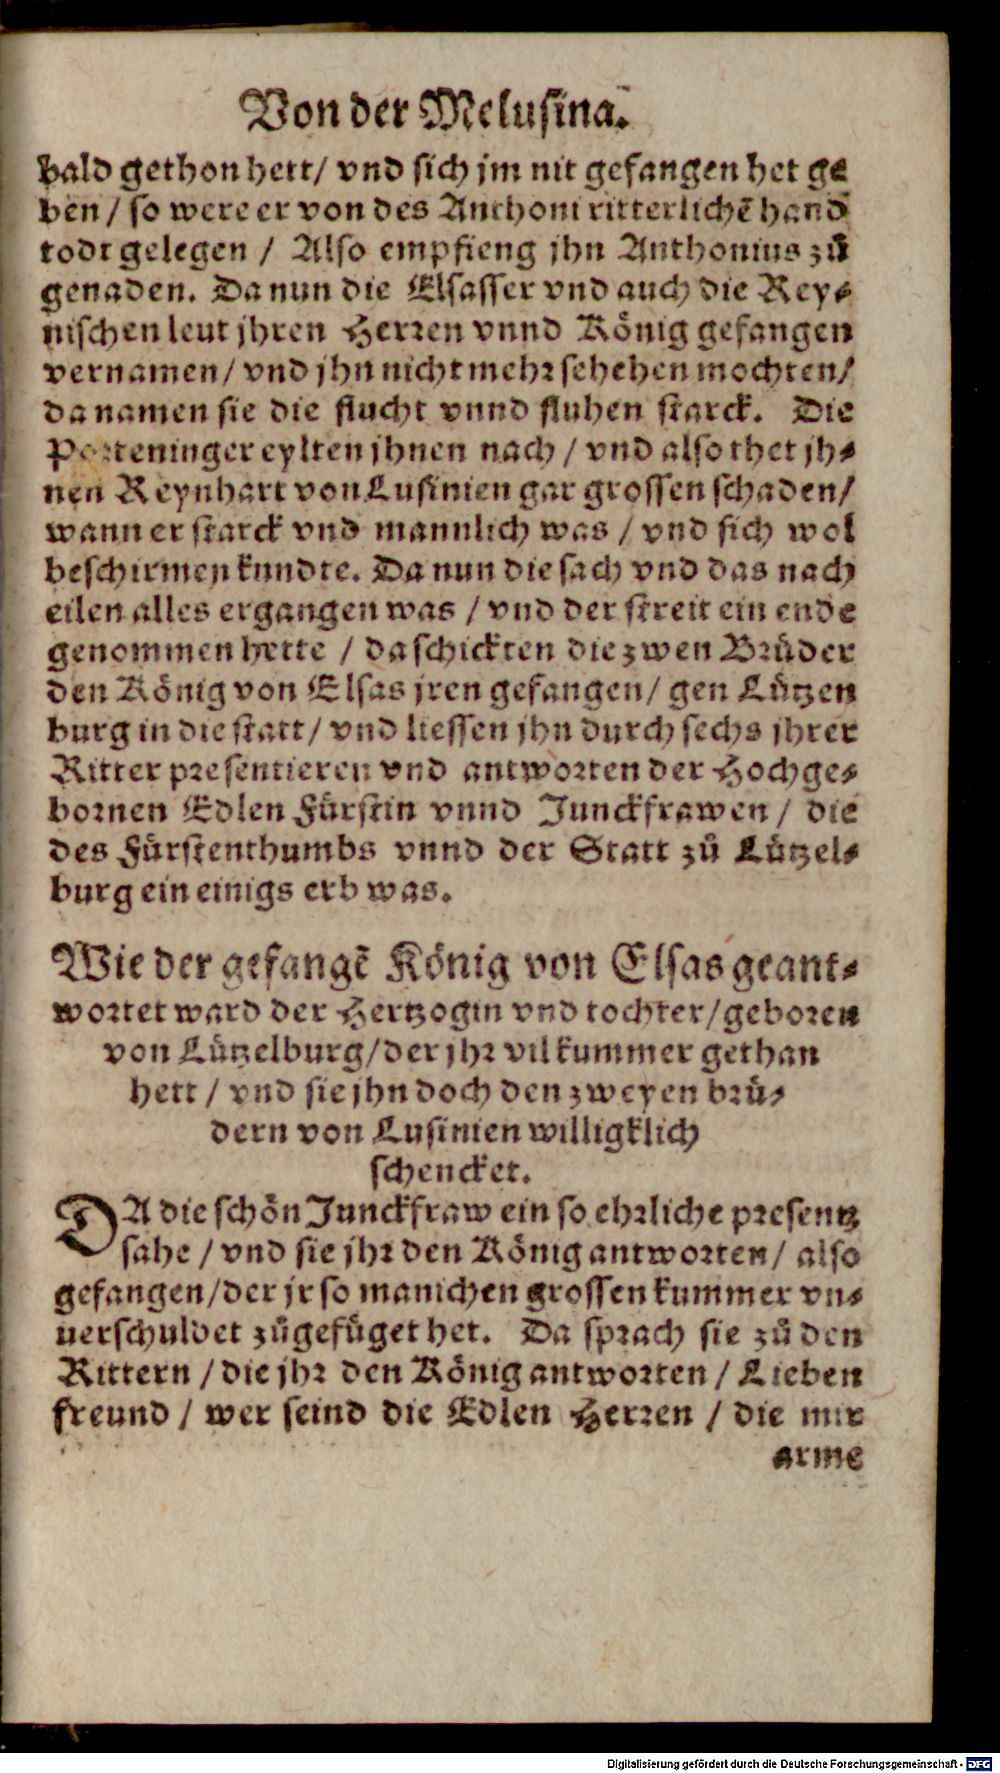 Von der Melusina.
bald gethon hett/ vnd sich jm nit gefangen het ge
ben / so were er von des Anthoni ritterlichẽ hand
todt gelegen / Also empfieng jhn Anthonius zů
genaden. Da nun die Elsasser vnd auch die Rey-
nischen leut jhren Herren vnnd König gefangen
vernamen/ vnd jhn nicht mehr sehehen mochten/
da namen sie die flucht vnnd fluhen starck. Die
Porteninger eylten jhnen nach / vnd also thet jh-
nen Reynhart von Lusinien gar grossen schaden/
wann er starck vnd mannlich was / vnd sich wol
beschirmen kundte. Da nun die sach vnd das nach
eilen alles ergangen was / vnd der streit ein ende
genommen hette / da schickten die zwen Brüder
den König von Elsas jren gefangen/ gen Lützen
burg in die statt/ vnd liessen jhn durch sechs jhrer
Ritter presentieren vnd antworten der Hochge-
bornen Edlen Fürstin vnnd Junckfrawen / die
des Fürstenthumbs vnnd der Statt zů Lützel-
burg ein einigs erb was.
Wie der gefangẽ König von Elsas geant-
wortet ward der Hertzogin vnd tochter/geboren
von Lützelburg/der jhr vil kummer gethan
hett / vnd sie jhn doch den zweyen brü-
dern von Lusinien willigklich
schencket.
DA die schön Junckfraw ein so ehrliche presentz
sahe / vnd sie jhr den König antworten/ also
gefangen/der jr so manichen grossen kummer vn-
uerschuldet zůgefüget het. Da sprach sie zů den
Rittern / die jhr den König antworten / Lieben
freund / wer seind die Edlen Herren / die mir
arme
Digitalisierung gefördert durch die Deutsche Forschungsgemeinschaft - DFG